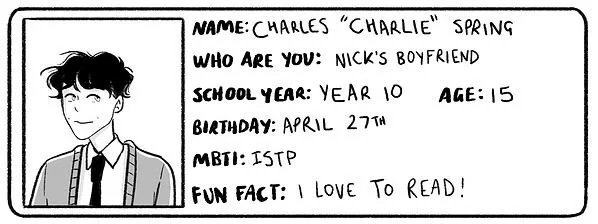 NAME: CHARLES "CHARLIE" SPRING
WHO ARE YOU: NICK'S BOYFRIEND
SCHOOL YEAR: YEAR 10 AGE: 15
BIRTHDAY: APRIL 27TH
MBTI: ISTP
FUN FACT: I LOVE TO READ!